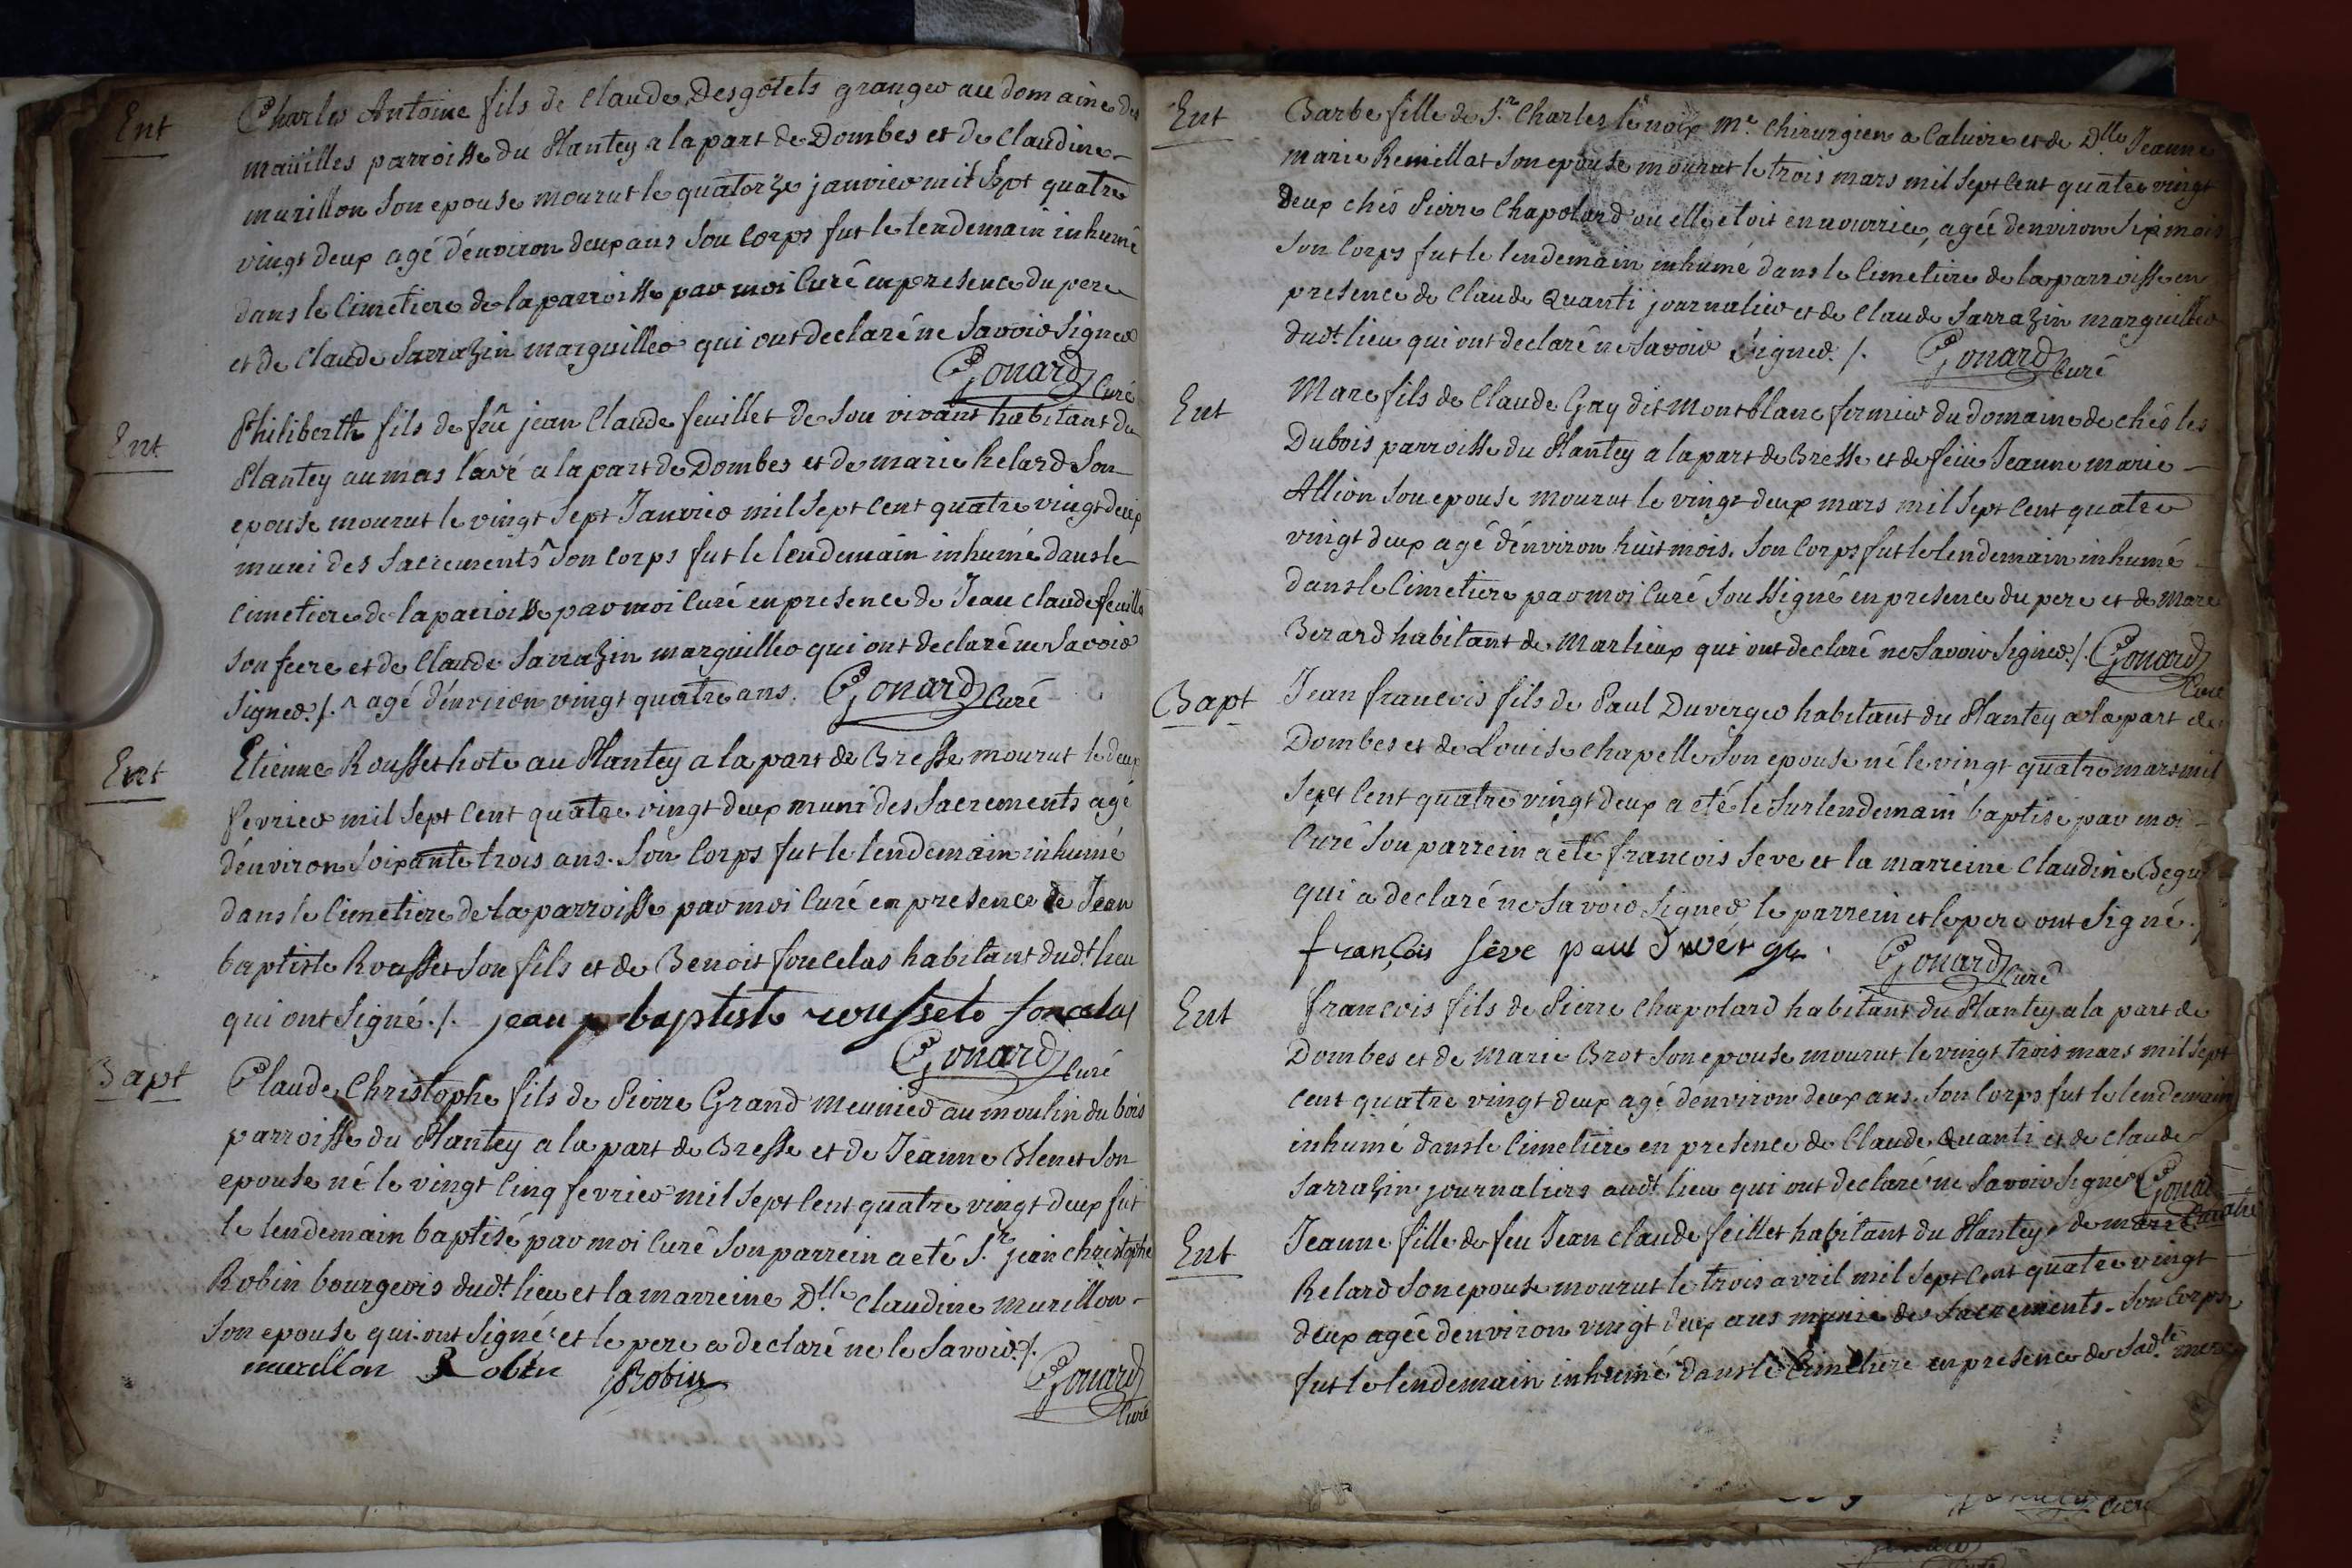 Ent
Charles Antoine fils de Claude Desgotels granger au domaine des
mauilles parroisse du Plantey a la part de Dombes et de Claudine
murillon son epouse mourut le quatorze janvier mil sept quatre
vingt deux agé d'environ deux ans son corps fut le lendemain inhumé
dans le Cimetiere de la parroisse par moi Curé en presence du pere
et de Claude Sarrazin marguillier qui ont declaré ne savoir signer
Gonard Curé
Ent
Philiberth fils de feû jean Claude feuillet de son vivant habitant du
Plantey au mas l'avé a la part de Dombes et de marie Relard son
epouse mourut le vingt sept Janvier mil sept cent quatre vingt deux
muni des sacrements ^ son corps fut le lendemain inhumé dans le
Cimetiere de la parroisse par moi Curé en presence de Jean claude feuillet
son frere et de Claude Sarrazin marguillier qui ont declaré ne savoir
signer ./. ^ agé d'environ vingt quatre ans. Gonard Curé
Ent
Etienne Rousset hote au Plantey a la part de Bresse mourut le deux
fevrier mil sept cent quatre vingt deux muni des sacrements agé
d'environ soixante trois ans. Son corps fut le lendemain inhumé
dans le Cimetiere de la parroisse par moi Curé en presence de Jean
baptiste Rousset son fils et de Benoit foncelas habitant dud.t lieu
qui ont signé ./. jean baptiste rousset foncelas
Gonard Curé
Bapt
Claude Christophe fils de Pierre Grand meunier au moulin du bois
parroisse du Plantey a la part de Bresse et de Jeanne Blenet son
epouse né le vingt cinq fevrier mil sept cent quatre vingt deux fut
le lendemain baptisé par moi Curé son parrein a eté S.r jean christophe
Robin bourgeois dud.t lieu et la marreine D.lle Claudine murillon
son epouse qui ont signé et le pere a declaré ne le savoir ./.
murillon Robin Robin
Gonard
Curé
Ent
Barbe fille de S.r Charles le noix M.e Chirurgien a Caluire et de D.lle Jeanne
marie Remillat son epouse mourut le trois mars mil sept cent quatre vingt
deux chés Pierre Chapolard ou elle etoit en nourrice, agée d'environ six mois
son corps fut le lendemain inhumé dans le Cimetiere de la parroisse en
presence de Claude Quanti journalier et de Claude Sarrazin marguillier
dud.t lieu qui ont declaré ne savoir signer ./. Gonard Curé
Ent
Marc fils de Claude Gay dit Montblanc fermier du domaine de chés les
Dubois parroisse du Plantey a la part de Bresse et de feüe Jeanne marie
Allion son epouse mourut le vingt deux mars mil sept cent quatre
vingt deux agé d'environ huit mois. Son corps fut le lendemain inhumé
dans le Cimetiere par moi Curé soussigné en presence du pere et de Marc
Berard habitant de Marlieux qui ont declaré ne savoir signer ./. Gonard
Curé
Bapt
Jean francois fils de Paul Duverger habitant du Plantey a la part de
Dombes et de Louise chapelle son epouse né le vingt quatre mars mil
sept cent quatre vingt deux a eté le surlendemain baptisé par moi
Curé son parrein a eté francois Seve et la marreine Claudine
qui a declaré ne savoir signer le parrein et le pere ont signé.
françois sève paul
Gonard Curé
Ent
francois fils de Pierre Chapolard habitant du Plantey a la part de
Dombes et de Marie Brot son epouse mourut le vingt trois mars mil sept
cent quatre vingt deux agé d'environ deux ans. Son corps fut le lendemain
inhumé dans le Cimetiere en presence de Claude Quanti et de claude
Sarrazin journaliers aud.t lieu qui ont declaré ne savoir signer Gonard
Ent
Jeanne fille de feu Jean Claude feillet habitant du Plantey, de marie
Relard son epouse mourut le trois avril mil sept cent quatre vingt
deux agée d'environ vingt deux ans munie des sacrements. Son corps
fut le lendemain inhumé dans le Cimetiere en presence de sad.te mere